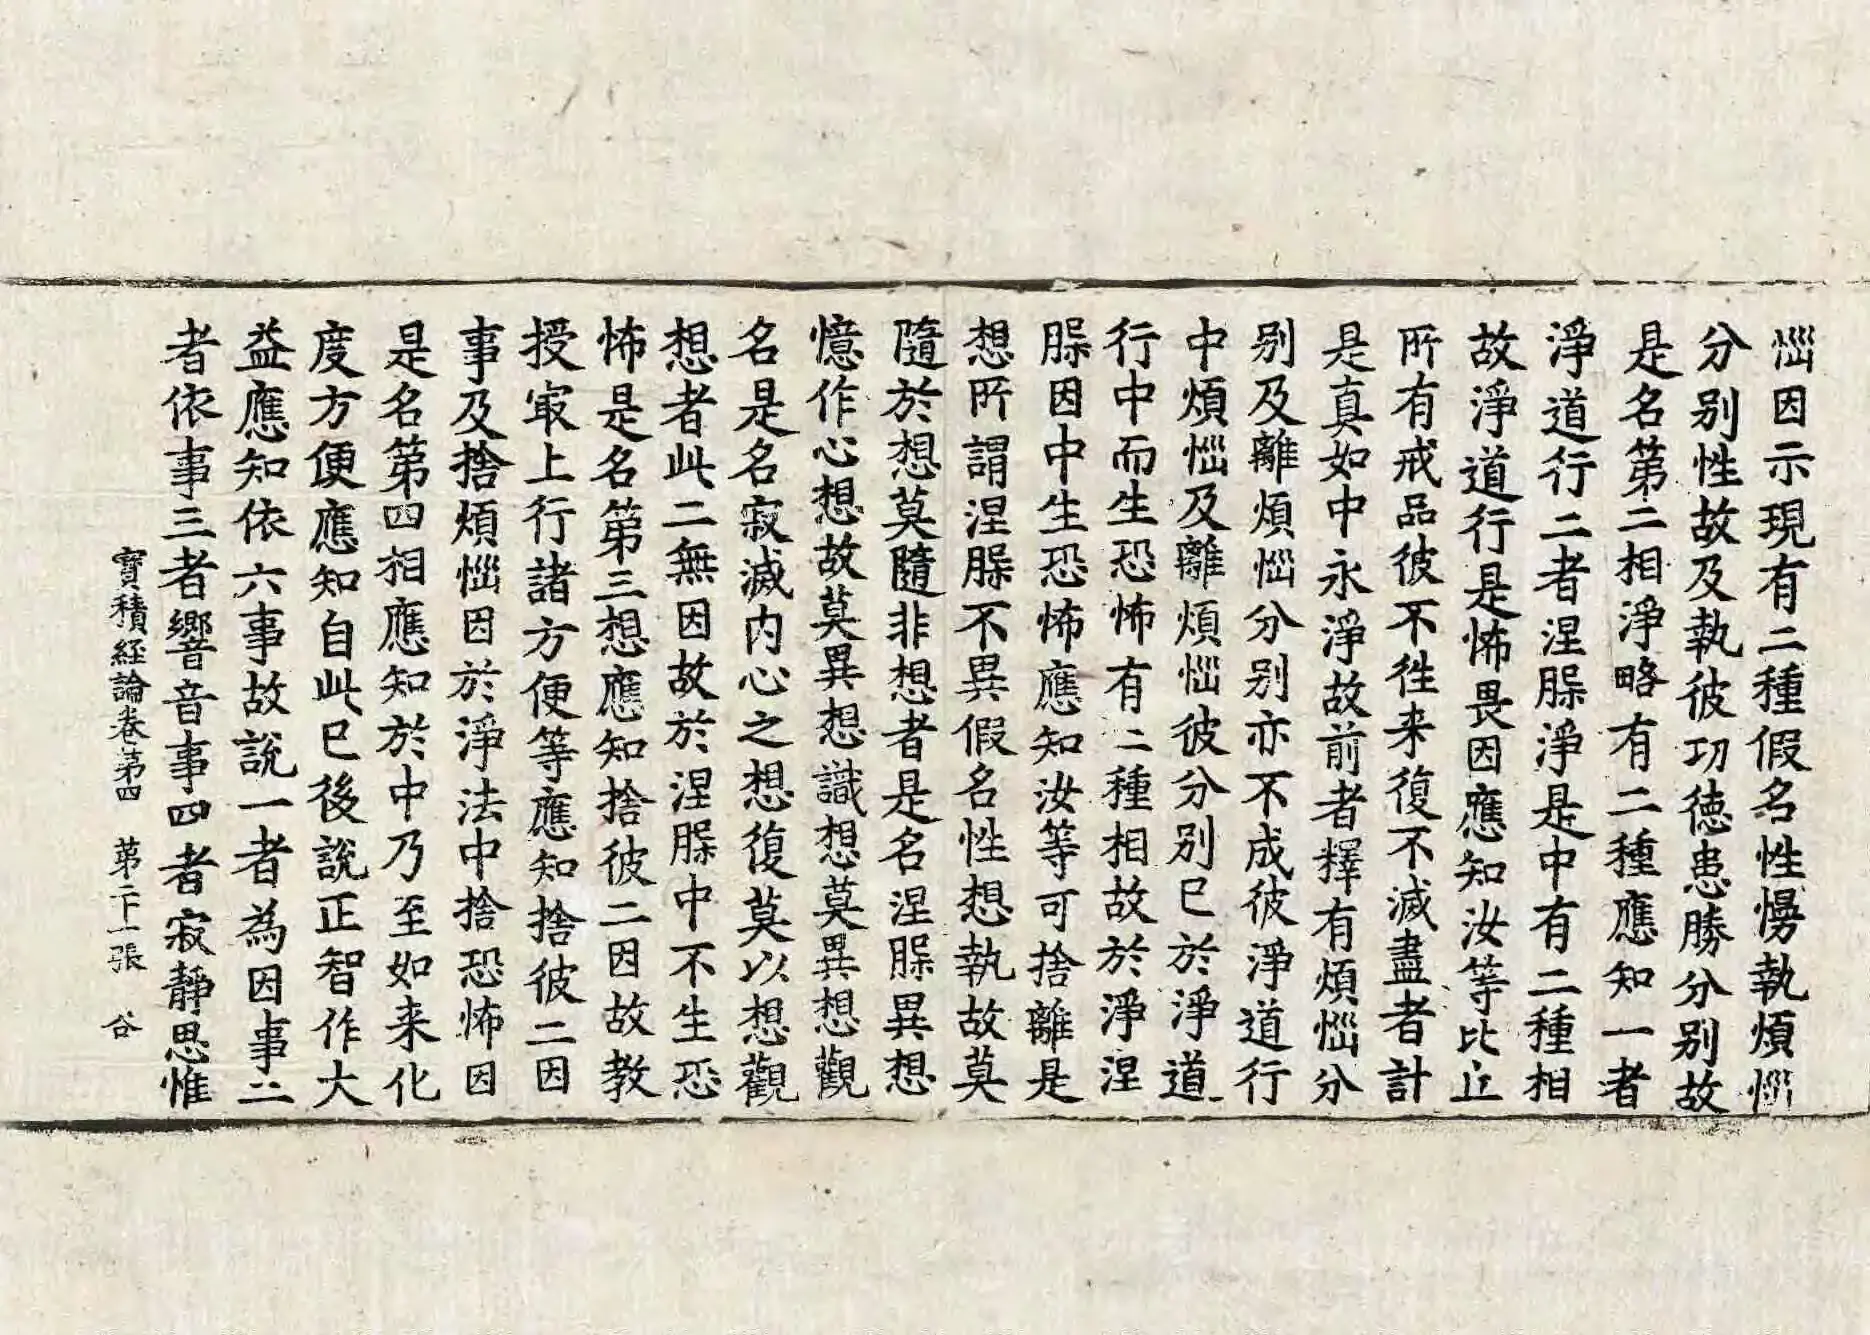 惱因示現有二種假名性慢執煩惱
分別性故及執彼功德患勝分別故
是名第二相淨略有二種應知一者
淨道行二者涅槃淨是中有二種相
故淨道行是怖畏因應知汝等比丘
所有戒品彼不徃来復不滅盡者計
是真如中永淨故前者擇有煩惱分
別及離煩惱分別亦不成彼淨道行
中煩惱及離煩惱彼分別已於淨道
行中而生恐怖有二種相故於淨涅
槃因中生恐怖應知汝等可捨離是
想所謂涅槃不異假名性想執故莫
隨於想莫隨非想者是名涅槃異想
憶作心想故莫異想識想莫異想觀
名是名寂滅內心之想復莫以想觀
想者此二無因故於涅槃中不生恐
怖是名第三想應知捨彼二因故教
授冣上行諸方便等應知捨彼二因
事及捨煩惱因於淨法中捨恐怖因
是名第四相應知於中乃至如来化
度方便應知自此已後說正智作大
益應知依六事故說一者為因事二
者依事三者響音事四者寂靜思惟
寶積經論卷第四　第二十一張　谷